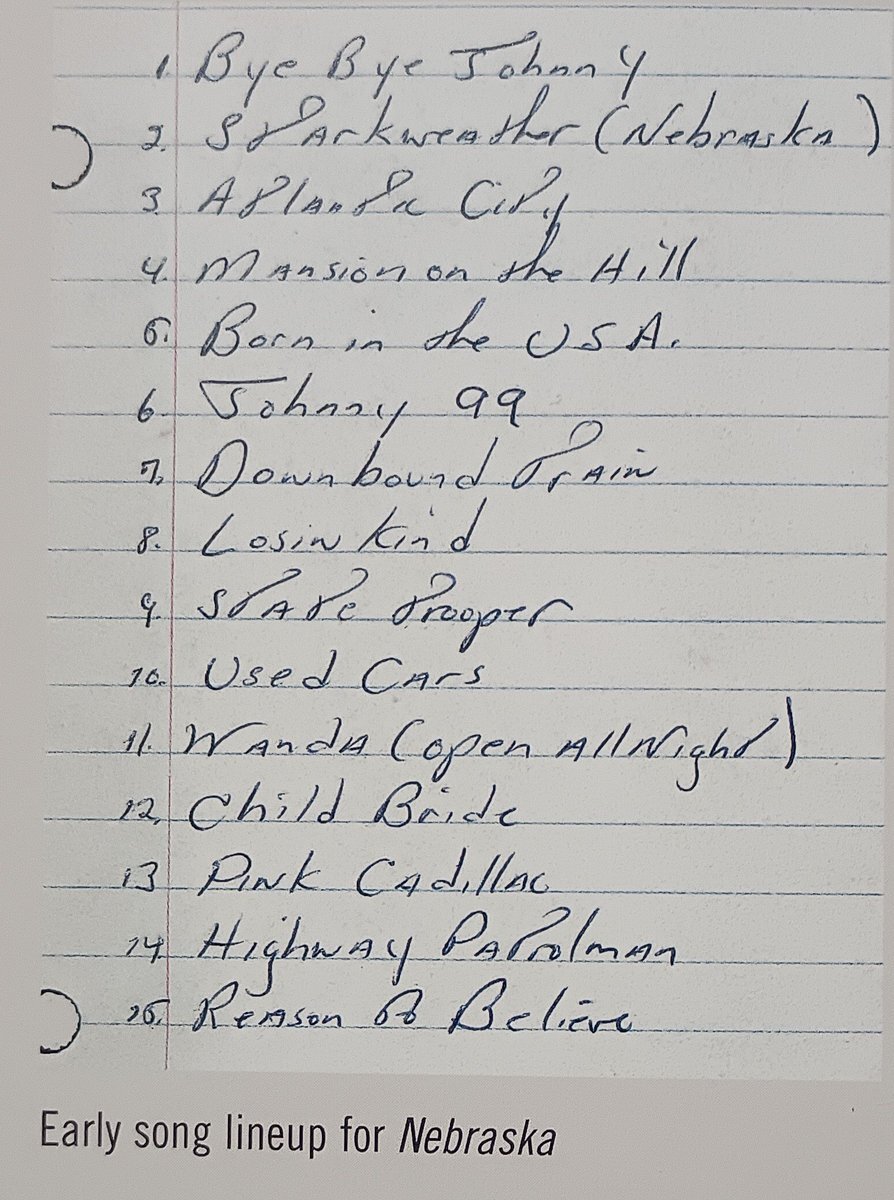 1. Bye Bye Johnny
2. Starkweather (Nebraska)
3. Atlantic City
4. Mansion on the Hill
5. Born in the USA.
6. Johnny 99
7. Downbound Train
8. Losin Kind
9. State Trooper
10. Used Cars
11. Wanda (open All Night)
12. Child Bride
13 Pink Cadillac
14. Highway Patrolman
15. Reason to Believe
Early song lineup for Nebraska